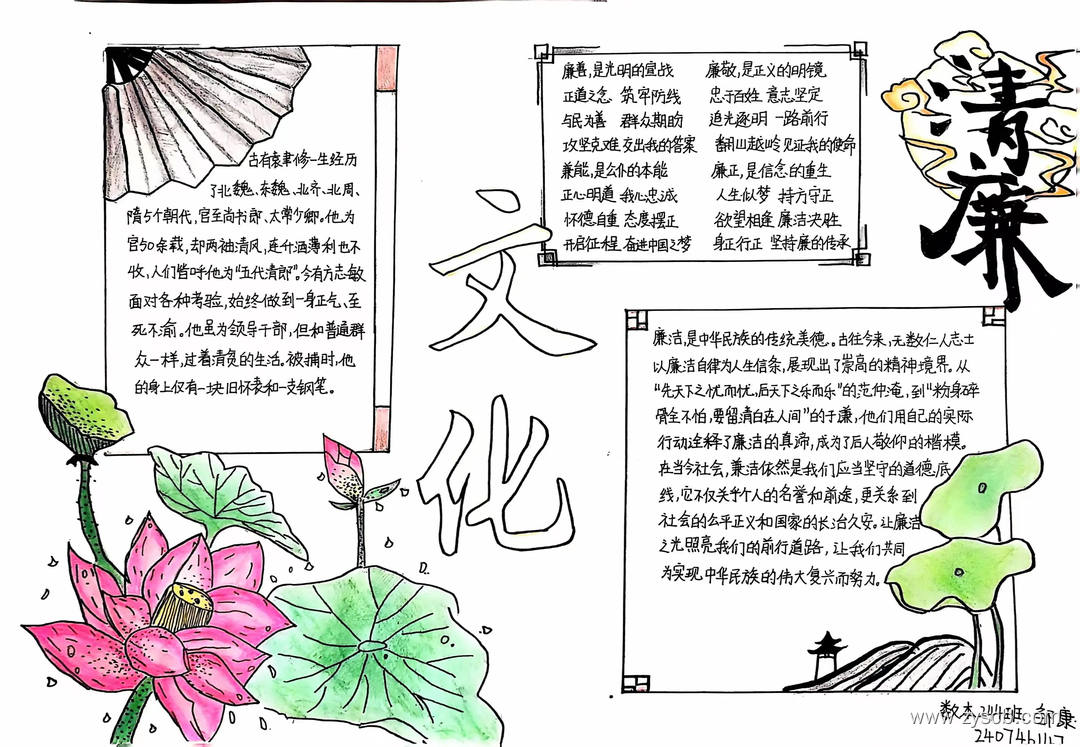 清廉
文化
古有袁聿修一生经历
了北魏、东魏、北齐、北周、
隋5个朝代,官至尚书郎、太常少卿。他为
官50余载,却两袖清风,连升酒薄利也不
收,人们皆呼他为“五代清郎”。今有方志敏
面对各种考验,始终做到一身正气、至
死不渝。他虽为领导干部,但和普通群
众一样,过着清贫的生活。被捕时,他
的身上仅有一块旧怀表和一支钢笔。
廉善,是光明的宣战 廉敬,是正义的明镜
正道之念 筑牢防线 忠于百姓 意志坚定
与民为善 群众期盼 追光逐明 一路前行
攻坚克难 交出我的答案 翻山越岭 见证我的使命
廉能,是公仆的本能 廉正,是信念的重生
正心明道 我心忠诚 人生似梦 持方守正
怀德自重 态度摆正 欲望相逢 廉洁决胜
开启征程 奋进中国之梦 身正行正 坚持廉的传承
廉洁,是中华民族的传统美德。古往今来,无数仁人志士
以廉洁自律为人生信条,展现出了崇高的精神境界。从
“先天下之忧而忧,后天下之乐而乐”的范仲淹,到“粉身碎
骨全不怕,要留清白在人间”的于谦,他们用自己的实际
行动诠释了廉洁的真谛,成为了后人敬仰的楷模。
在当今社会,廉洁依然是我们应当坚守的道德底
线,它不仅关乎个人的名誉和前途,更关系到
社会的公平正义和国家的长治久安。让廉洁
之光照亮我们的前行道路,让我们共同
为实现中华民族的伟大复兴而努力。
数本244班 邹康